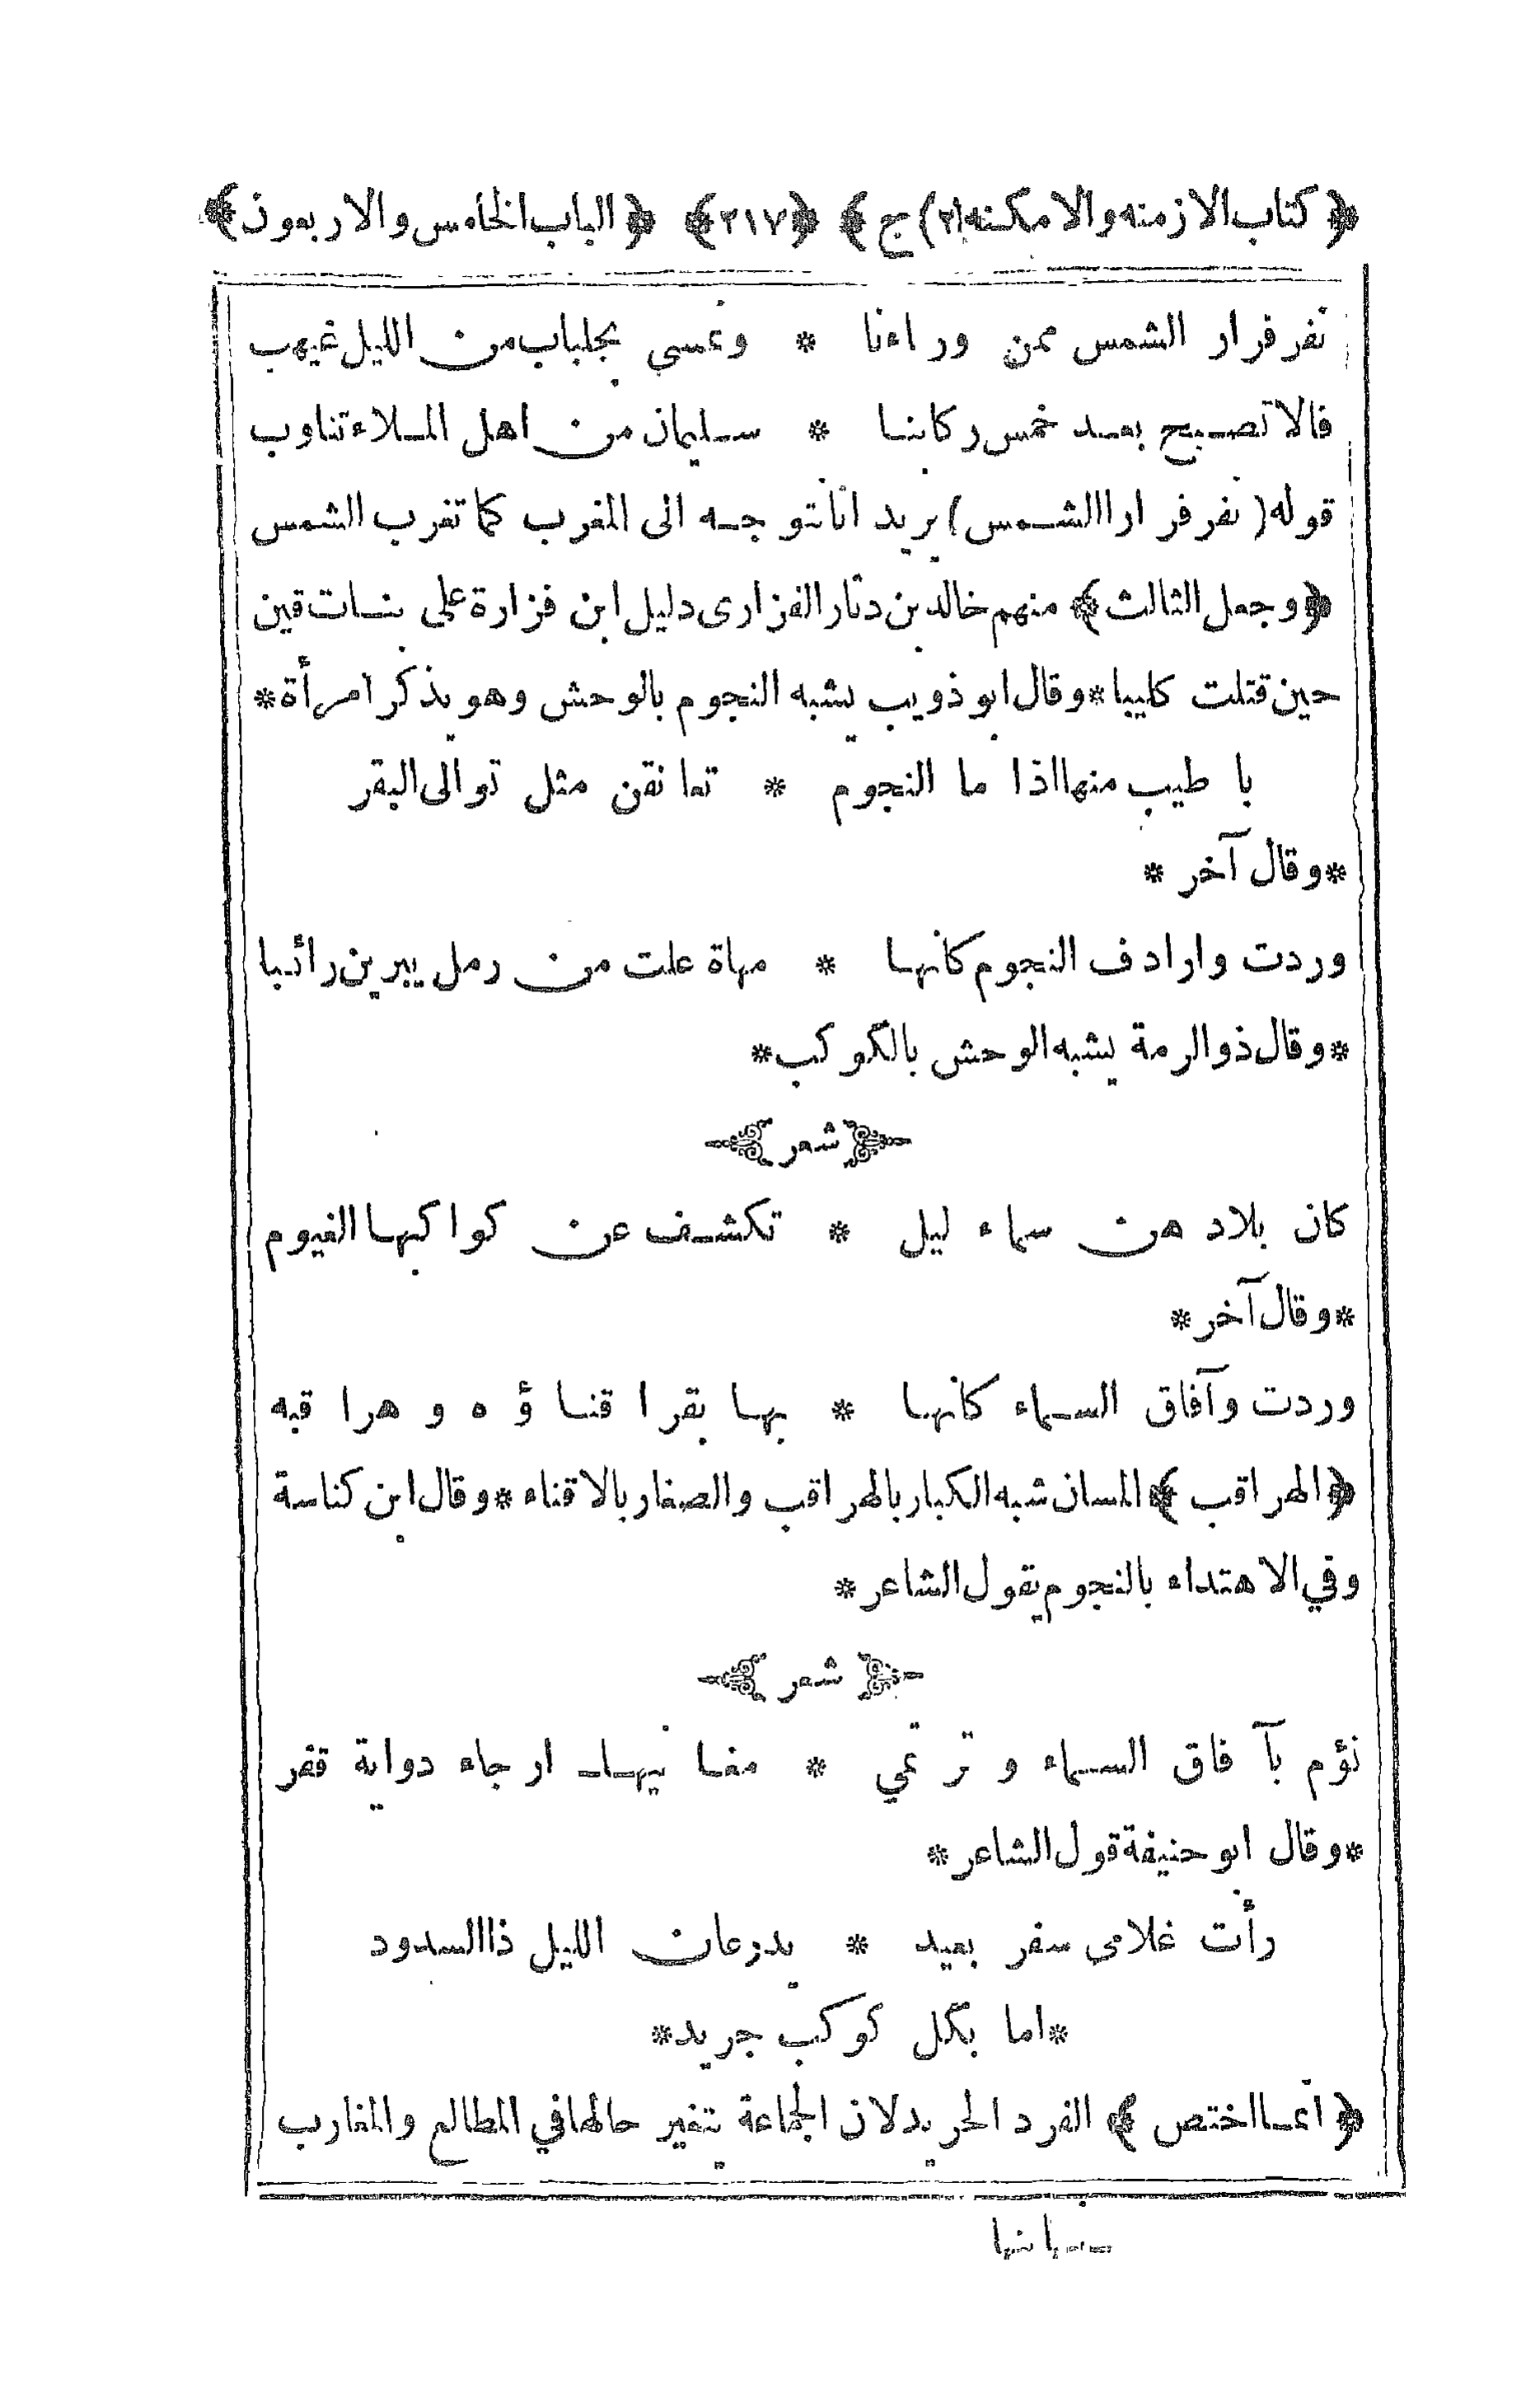 ﴿كتاب الازمنه والامكنه(٢)ج﴾ ﴿٢١٧﴾ ﴿الباب الخامس والاربعون﴾
نفر فرار الشمس ممن وراءنا * وغسي بجلباب من الليل غيهب
فالا تصبح بعد خمس ركابنا * سليمان من اهل الملاء تناوب
قوله(نفر فرارا الشمس) يريد انا نتوجه الى المغرب كما تغرب الشمس
﴿وجعل الثالث﴾ منهم خالد بن دثار الفزارى دليل ابن فزارة على بنات قين
حين قتلت كلبيا*وقال ابو ذويب يشبه النجوم بالوحش وهو يذكر امرأة*
با طيب منها اذا ما النجوم * تعا نقن مثل توالى البقر
*وقال آخر*
وردت وارادف النجوم كانها * مهاة علت من رمل يبرين رائبا
*وقال ذوالرمة يشبه الوحش بالكوكب*
﴿شعر﴾
كان بلاد هن سماء ليل * تكشف عن كواكبها الغيوم
*وقال آخر*
وردت وآفاق السماء كانها * بها بقر اقناؤه وهراقبه
﴿الهراقب﴾ المسان شبه الكبار بالهراقب والصغار بالاقناء*وقال ابن كناسة
وفي الاهتداء بالنجوم يقول الشاعر*
﴿شعر﴾
نؤم بآفاق السماء وترتمي * مغا نيها ارجاء دواية قفر
*وقال ابو حنيفة قول الشاعر*
رأت غلامى سفر بعيد * يدرعان الليل ذا السدود
*اما بكل كوكب جريد*
﴿انما اختص﴾ الفرد الحريد لان الجماعة يتغير حالها في المطالع والمغارب